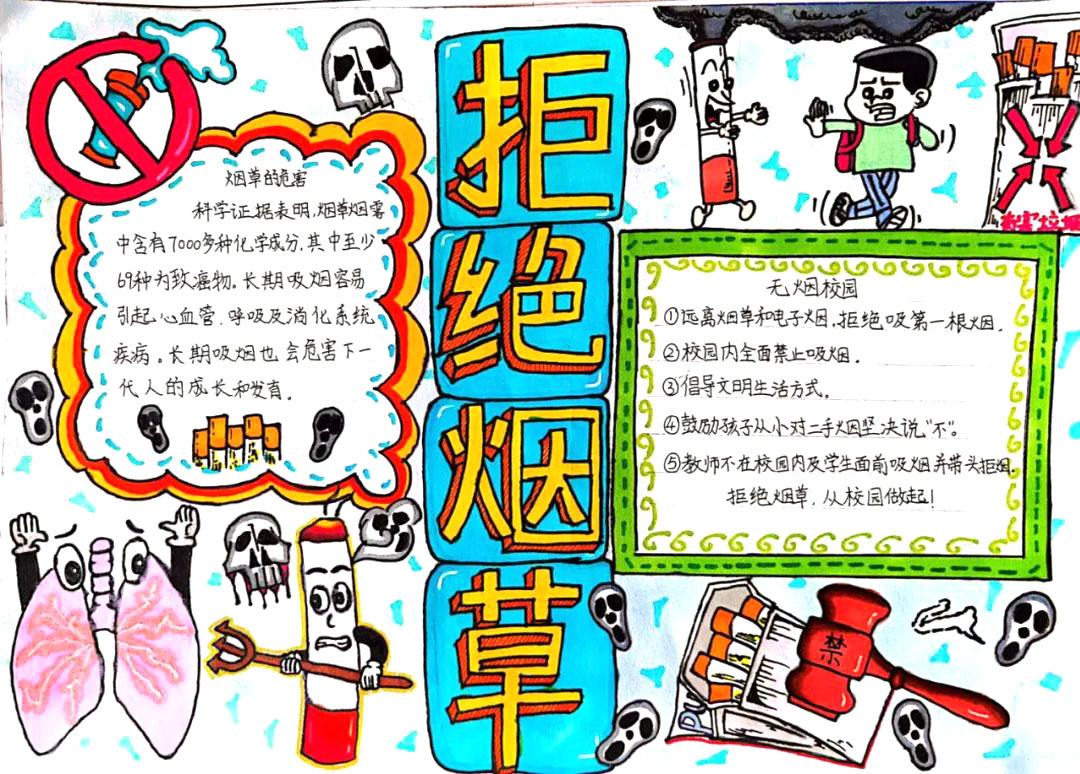 拒
绝
烟
草
烟草的危害
科学证据表明,烟草烟雾
中含有7000多种化学成分,其中至少
69种为致癌物。长期吸烟容易
引起心血管、呼吸及消化系统
疾病。长期吸烟也会危害下一
代人的成长和发育。
无烟校园
①远离烟草和电子烟,拒绝吸第一根烟。
②校园内全面禁止吸烟。
③倡导文明生活方式。
④鼓励孩子从小对二手烟坚决说“不”。
⑤教师不在校园内及学生面前吸烟并带头拒烟。
拒绝烟草,从校园做起!
禁